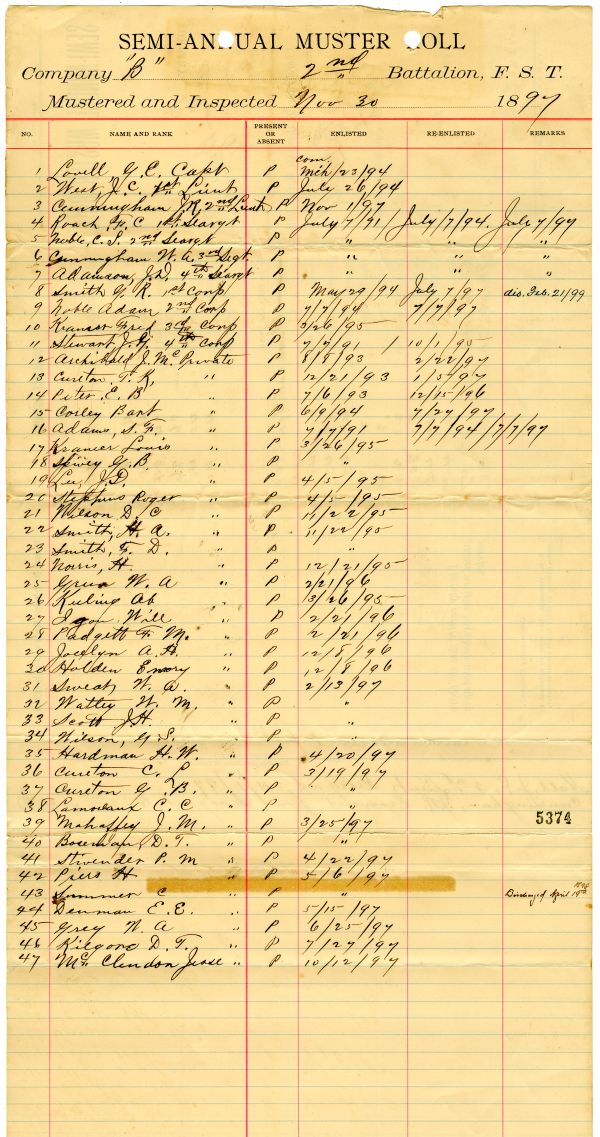 SEMI-ANNUAL MUSTER ROLL
Company "B" 2nd Battalion, F. S. T.
Mustered and Inspected Nov 30 1897
NO. NAME AND RANK PRESENT OR ABSENT ENLISTED RE-ENLISTED REMARKS
com
1 Lovell G. E. Capt P Mch/23/94
2 West, J. C. 1st Lieut P July 26/94
3 Cunningham J. R. 2nd Lieut P Nov 1/97
4 Roach, C 1st Seargt P July 7/91 July/7/94. July 7/97
5 Noble, C. S. 2nd Seargt P " " "
6 Cunningham W. A. 3rd Segt P " " "
7 Adamson, J. D. 4th Seargt P " " "
8 Smith G. R. 1st Corp P May 29/94 July 7/97 dis. Feb. 21/99
9 Noble Adam 2nd Corp P 7/7/94 7/7/97
10 Kramer Fred 3rd Corp P 3/26/95
11 Stewart J. G. 4th Corp P 7/7/91 10/1/95
12 Archibald J. Mc Private P 8/8/93 2/22/97
13 Cureton, T. K, " P 12/21/93 1/5/97
14 Peter, E. B " P 7/6/93 12/15/96
15 Corley Bart " P 6/9/94 7/27/97
16 Adams, S. F. " P 7/7/91 7/7/94/7/7/97
17 Kramer Louis " P 3/26/95
18 Spivey G. B. " P "
19 Lee, J. D. " P 4/5/95
20 Stephens Roger " P 4/5/95
21 Wilson D. C " P 11/22/95
22 Smith, H. A. " P 11/22/95
23 Smith, F. D. " P "
24 Norris, H. " P 12/21/95
25 Green W. A " P 2/21/96
26 Keeling Ab " P 3/26/95
27 Will " P 2/21/96
28 Padgett F. M. " P 2/21/96
29 Jocelyn A. H. " P 12/8/96
30 Holden Emory " P 12/8/96
31 Sweat, W. A. " P 2/13/97
32 Watley W. M. " P "
33 Scott J. H. " P "
34 Wilson, G. S. " P "
35 Hardman H. W. " P 4/20/97
36 Cureton C. L " P 3/19/97
37 Cureton G. B. " P "
38 Lamoreaux C. C " P "
39 Mahaffey J. M. " P 3/25/97
5374
40 Boseman D. T. " P "
41 Stivender P. M " P 4/22/97
42 Piers H " P 5/6/97
43 Summer C " P " Discharged April 14th
44 Denman E. E. " P 5/15/97
45 Grey W. A " P 6/25/97
46 Kilgore D. T. " P 7/27/97
47 Mc Clendon Jesse " P 10/12/97